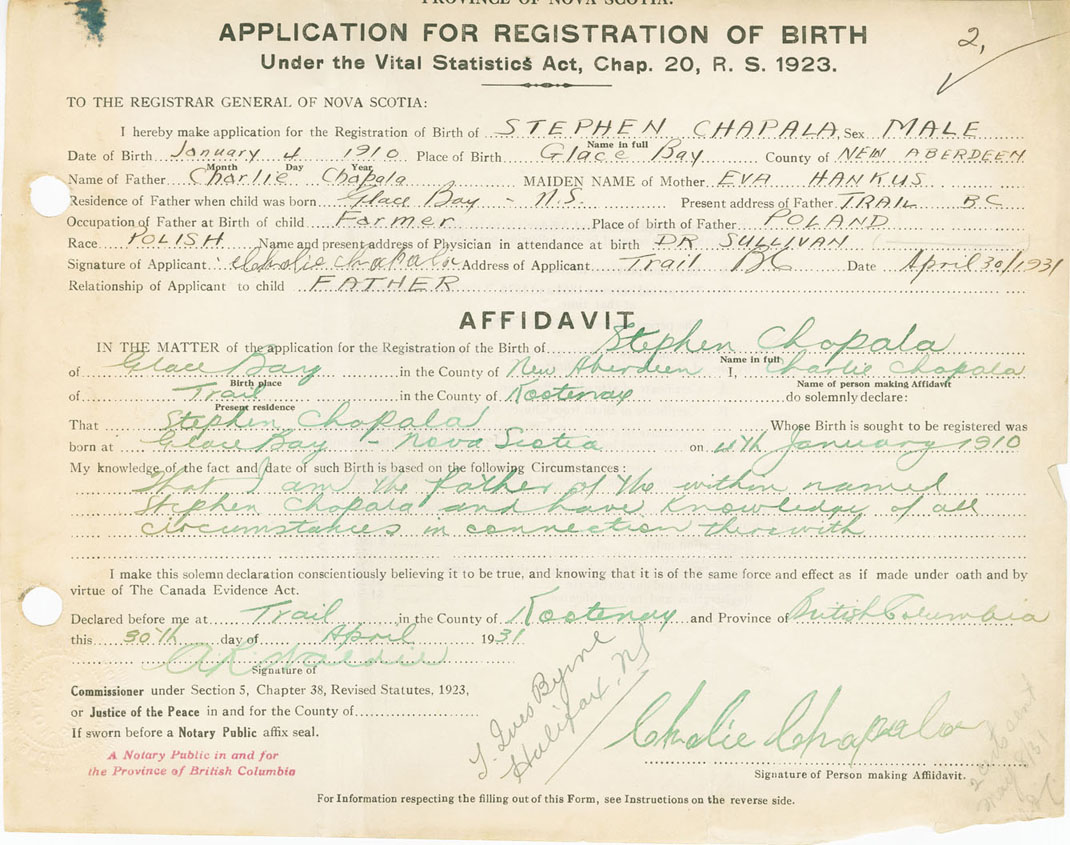 PROVINCE OF NOVA SCOTIA.
APPLICATION FOR REGISTRATION OF BIRTH
2,
Under the Vital Statistics Act, Chap. 20, R. S. 1923.
TO THE REGISTRAR GENERAL OF NOVA SCOTIA:
I hereby make application for the Registration of Birth of STEPHEN CHAPALA, Sex MALE
Name in full
Date of Birth January 4 1910 Place of Birth Glace Bay County of NEW ABERDEEN
Month Day Year
Name of Father Charlie Chapala MAIDEN NAME of Mother EVA HANKUS
Residence of Father when child was born Glace Bay - N.S. Present address of Father TRAIL BC
Occupation of Father at Birth of child Farmer Place of birth of Father POLAND
Race POLISH Name and present address of Physician in attendance at birth DR SULLIVAN
Signature of Applicant Cholie Chapala Address of Applicant Trail BC Date April 30/1931
Relationship of Applicant to child FATHER
AFFIDAVIT
IN THE MATTER of the application for the Registration of the Birth of Stephen Chopala
Name in full
of Glace Bay in the County of New Aberdeen I, Charlie Chapala
Birth place Name of person making Affidavit
of Trail in the County of Kootenay do solemnly declare:
Present residence
That Stephen Chopala Whose Birth is sought to be registered was
born at Glace Bay - Nova Scotia on 4th January 1910
My knowledge of the fact and date of such Birth is based on the following Circumstances:
that I am the father of the within named
Stephen Chopala and have knowledge of all
circumstances in connection therewith
I make this solemn declaration conscientiously believing it to be true, and knowing that it is of the same force and effect as if made under oath and by
virtue of The Canada Evidence Act.
Declared before me at Trail in the County of Kootenay and Province of British Columbia
this 30th day of April 1931
Signature of
Commissioner under Section 5, Chapter 38, Revised Statutes, 1923,
or Justice of the Peace in and for the County of
If sworn before a Notary Public affix seal.
A Notary Public in and for
the Province of British Columbia
Byrne
Halifax, NS
Cholie Chapala
Signature of Person making Affidavit.
May 8/31
For Information respecting the filling out of this Form, see Instructions on the reverse side.